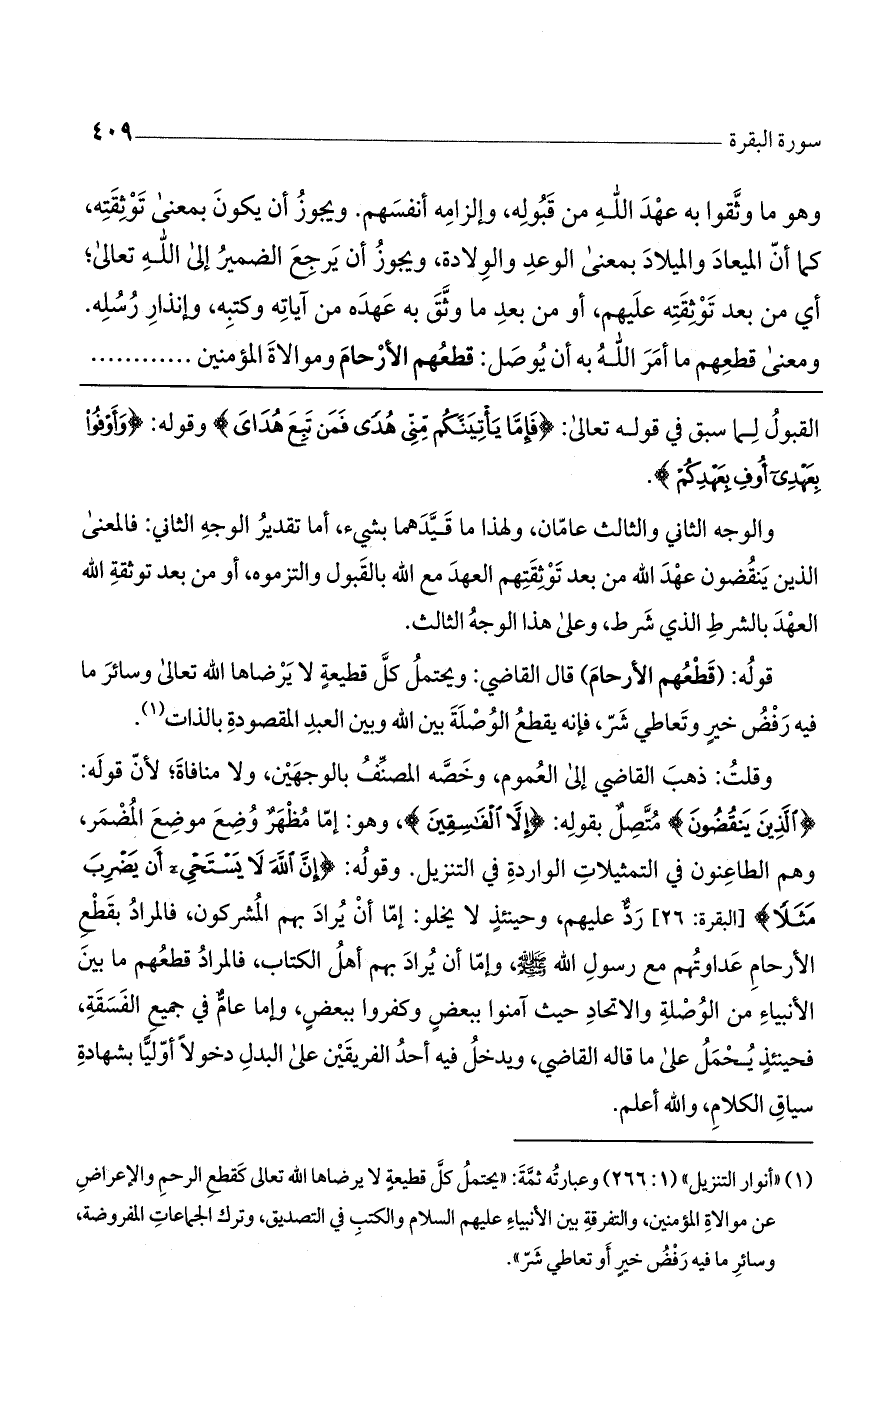 سورة البقرة ٤٠٩
وهو ما وثَّقوا به عهْدَ اللهِ من قَبُولِه، وإلزامِه أنفسَهم. ويجوزُ أن يكونَ بمعنىٰ تَوْثِقَتِه،
كما أنّ الميعادَ والميلادَ بمعنىٰ الوعدِ والوِلادة، ويجوزُ أن يَرجِعَ الضميرُ إلىٰ اللهِ تعالىٰ؛
أي من بعد تَوْثِقَتِه علَيهم، أو من بعدِ ما وثَّقَ به عَهدَه من آياتِه وكتبِه، وإنذارِ رُسُلِه.
ومعنىٰ قطعِهم ما أمَرَ اللهُ به أن يُوصَل: قطعُهم الأرْحامَ وموالاةَ المؤمنين ............
القبولُ لِما سبق في قوله تعالىٰ: ﴿فَإِمَّا يَأْتِيَنَّكُم مِّنِّى هُدًى فَمَن تَبِعَ هُدَاىَ﴾ وقوله: ﴿وَأَوْفُواْ
بِعَهْدِىٓ أُوفِ بِعَهْدِكُمْ﴾.
والوجه الثاني والثالث عامّان، ولهذا ما قَيَّدَهما بشيء، أما تقديرُ الوجهِ الثاني: فالمعنىٰ
الذين يَنقُضون عهْدَ الله من بعد تَوْثِقَتِهم العهدَ مع الله بالقَبول والتزموه، أو من بعد توثقةِ الله
العهْدَ بالشرطِ الذي شَرط، وعلىٰ هذا الوجهُ الثالث.
قولُه: (قَطْعُهم الأرحامَ) قال القاضي: ويحتملُ كلَّ قطيعةٍ لا يَرْضاها الله تعالىٰ وسائرَ ما
فيه رَفْضُ خيرٍ وتَعاطي شَرّ، فإنه يقطعُ الوُصْلَةَ بين الله وبين العبدِ المقصودةِ بالذات(١).
وقلتُ: ذهبَ القاضي إلىٰ العُموم، وخَصَّه المصنِّفُ بالوجهَيْن، ولا منافاةَ؛ لأنّ قولَه:
﴿ٱلَّذِينَ يَنقُضُونَ﴾ مُتَّصِلٌ بقولِه: ﴿إِلَّا ٱلْفَٰسِقِينَ﴾، وهو: إمّا مُظْهَرٌ وُضِعَ موضِعَ المُضْمَر،
وهم الطاعِنون في التمثيلاتِ الواردةِ في التنزيل. وقولُه: ﴿إِنَّ ٱللَّهَ لَا يَسْتَحْىِۦٓ أَن يَضْرِبَ
مَثَلًا﴾ [البقرة: ٢٦] رَدٌّ عليهم، وحينئذٍ لا يخلو: إمّا أنْ يُرادَ بهم المُشركون، فالمرادُ بقَطْعِ
الأرحامِ عَداوتُهم مع رسولِ الله ﷺ، وإمّا أن يُرادَ بهم أهلُ الكتاب، فالمرادُ قطعُهم ما بينَ
الأنبياءِ من الوُصْلةِ والاتحادِ حيث آمنوا ببعضٍ وكفروا ببعضٍ، وإما عامٌّ في جميعِ الفَسَقَةِ،
فحينئذٍ يُحْمَلُ علىٰ ما قاله القاضي، ويدخلُ فيه أحدُ الفريقَيْن علىٰ البدلِ دخولاً أوّليًّا بشهادةِ
سياقِ الكلامِ، والله أعلم.
(١) «أنوار التنزيل» (١: ٢٦٦) وعبارتُه ثَمَّةَ: «يحتملُ كلَّ قطيعةٍ لا يرضاها الله تعالى كَقطعِ الرحمِ والإعراضِ
عن موالاةِ المؤمنين، والتفرقةِ بين الأنبياءِ عليهم السلام والكتبِ في التصديق، وتركِ الجماعاتِ المفروضة،
وسائرِ ما فيه رَفْضُ خيرٍ أو تعاطي شَرّ».